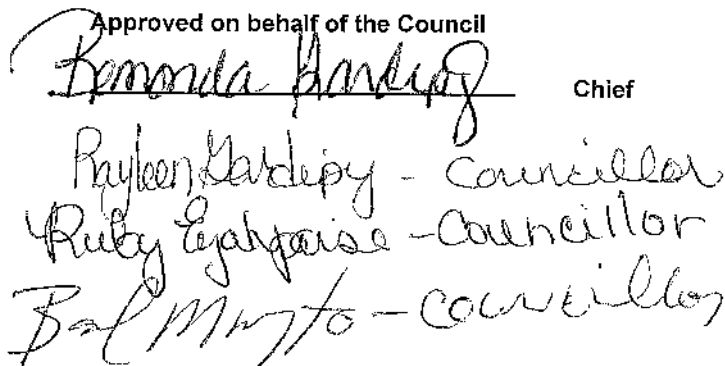 Approved on behalf of the Council
Chief
Rayleen Gardipy - Councillor
Ruby Eyahpaise - Councillor
- Councillor